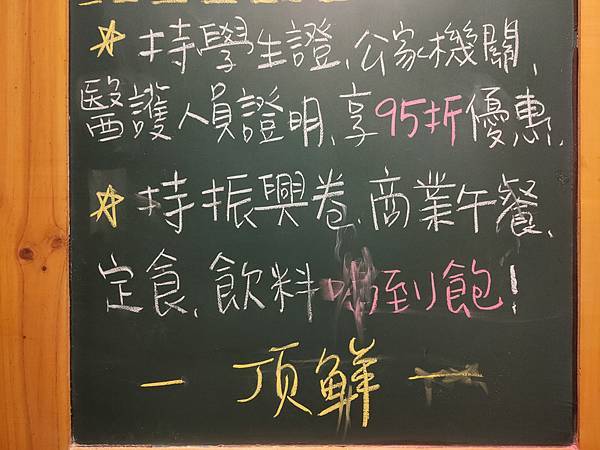 ★持學生證、公家機關、
醫護人員證明、享95折優惠.
★持振興卷、商業午餐、
定食、飲料喝到飽!
一頂鮮一